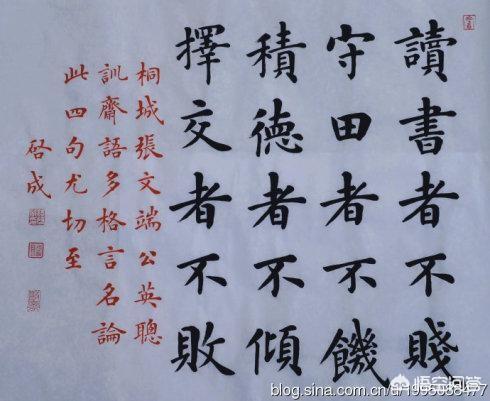 讀書者不賤
守田者不饑
積德者不傾
擇交者不敗
桐城張文端公英聰
訓齋語多格言名論
此四句尤切至
启成
悟空问答